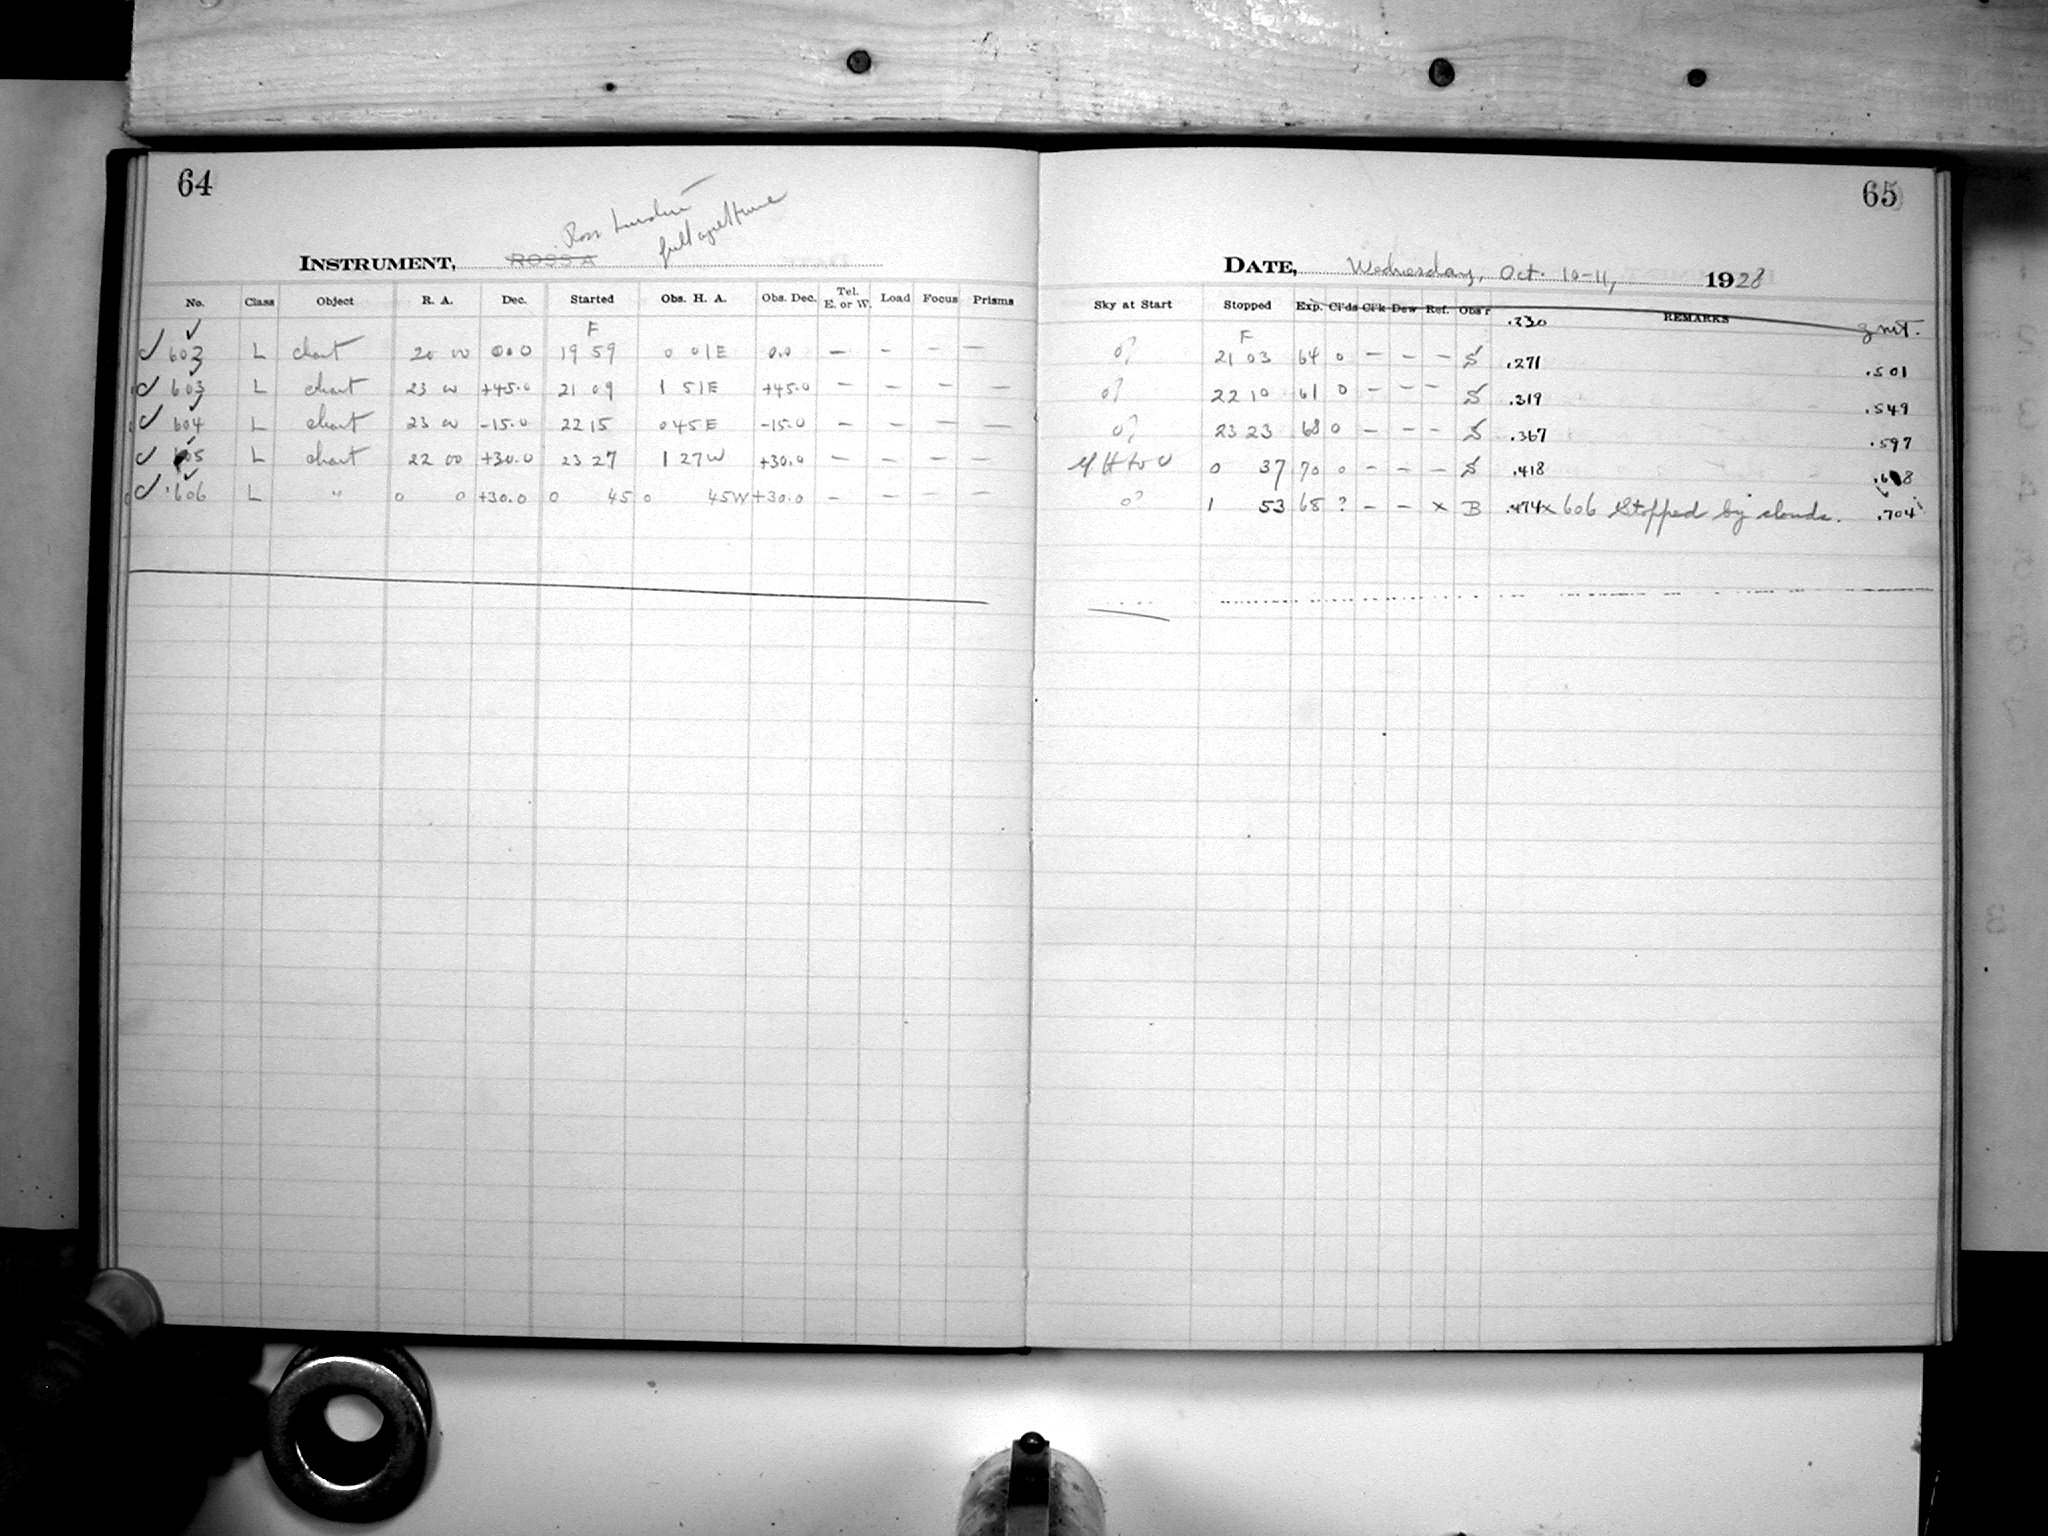 64
Ross
full aperture
INSTRUMENT, ROSS A
No. Class Object R. A. Dec. Started Obs. H. A. Obs. Dec. Tel. E. or W. Load Focus Prisms
F
602 L chart 20 00 0.0 19 59 0 01E 0.0 — — — —
603 L chart 23 00 +45.0 21 09 1 51E +45.0 — — — —
604 L chart 23 00 -15.0 22 15 0 45E -15.0 — — — —
605 L chart 22 00 +30.0 23 27 1 27W +30.0 — — — —
606 L " 0 0 +30.0 0 45 0 45W +30.0 — — — —
65
DATE, Wednesday, Oct. 10-11, 1928
Sky at Start Stopped Exp. Cl'ds Cl'k Dew Ref. Obs'r REMARKS
F .230 g m t.
0? 21 03 64 0 — — — S .271 .501
0? 22 10 61 0 — — — S .319 .549
0? 23 23 68 0 — — — S .367 .597
0 37 70 0 — — — S .418
0? 1 53 68 ? — — x B .474 x 606 Stopped by clouds. .704